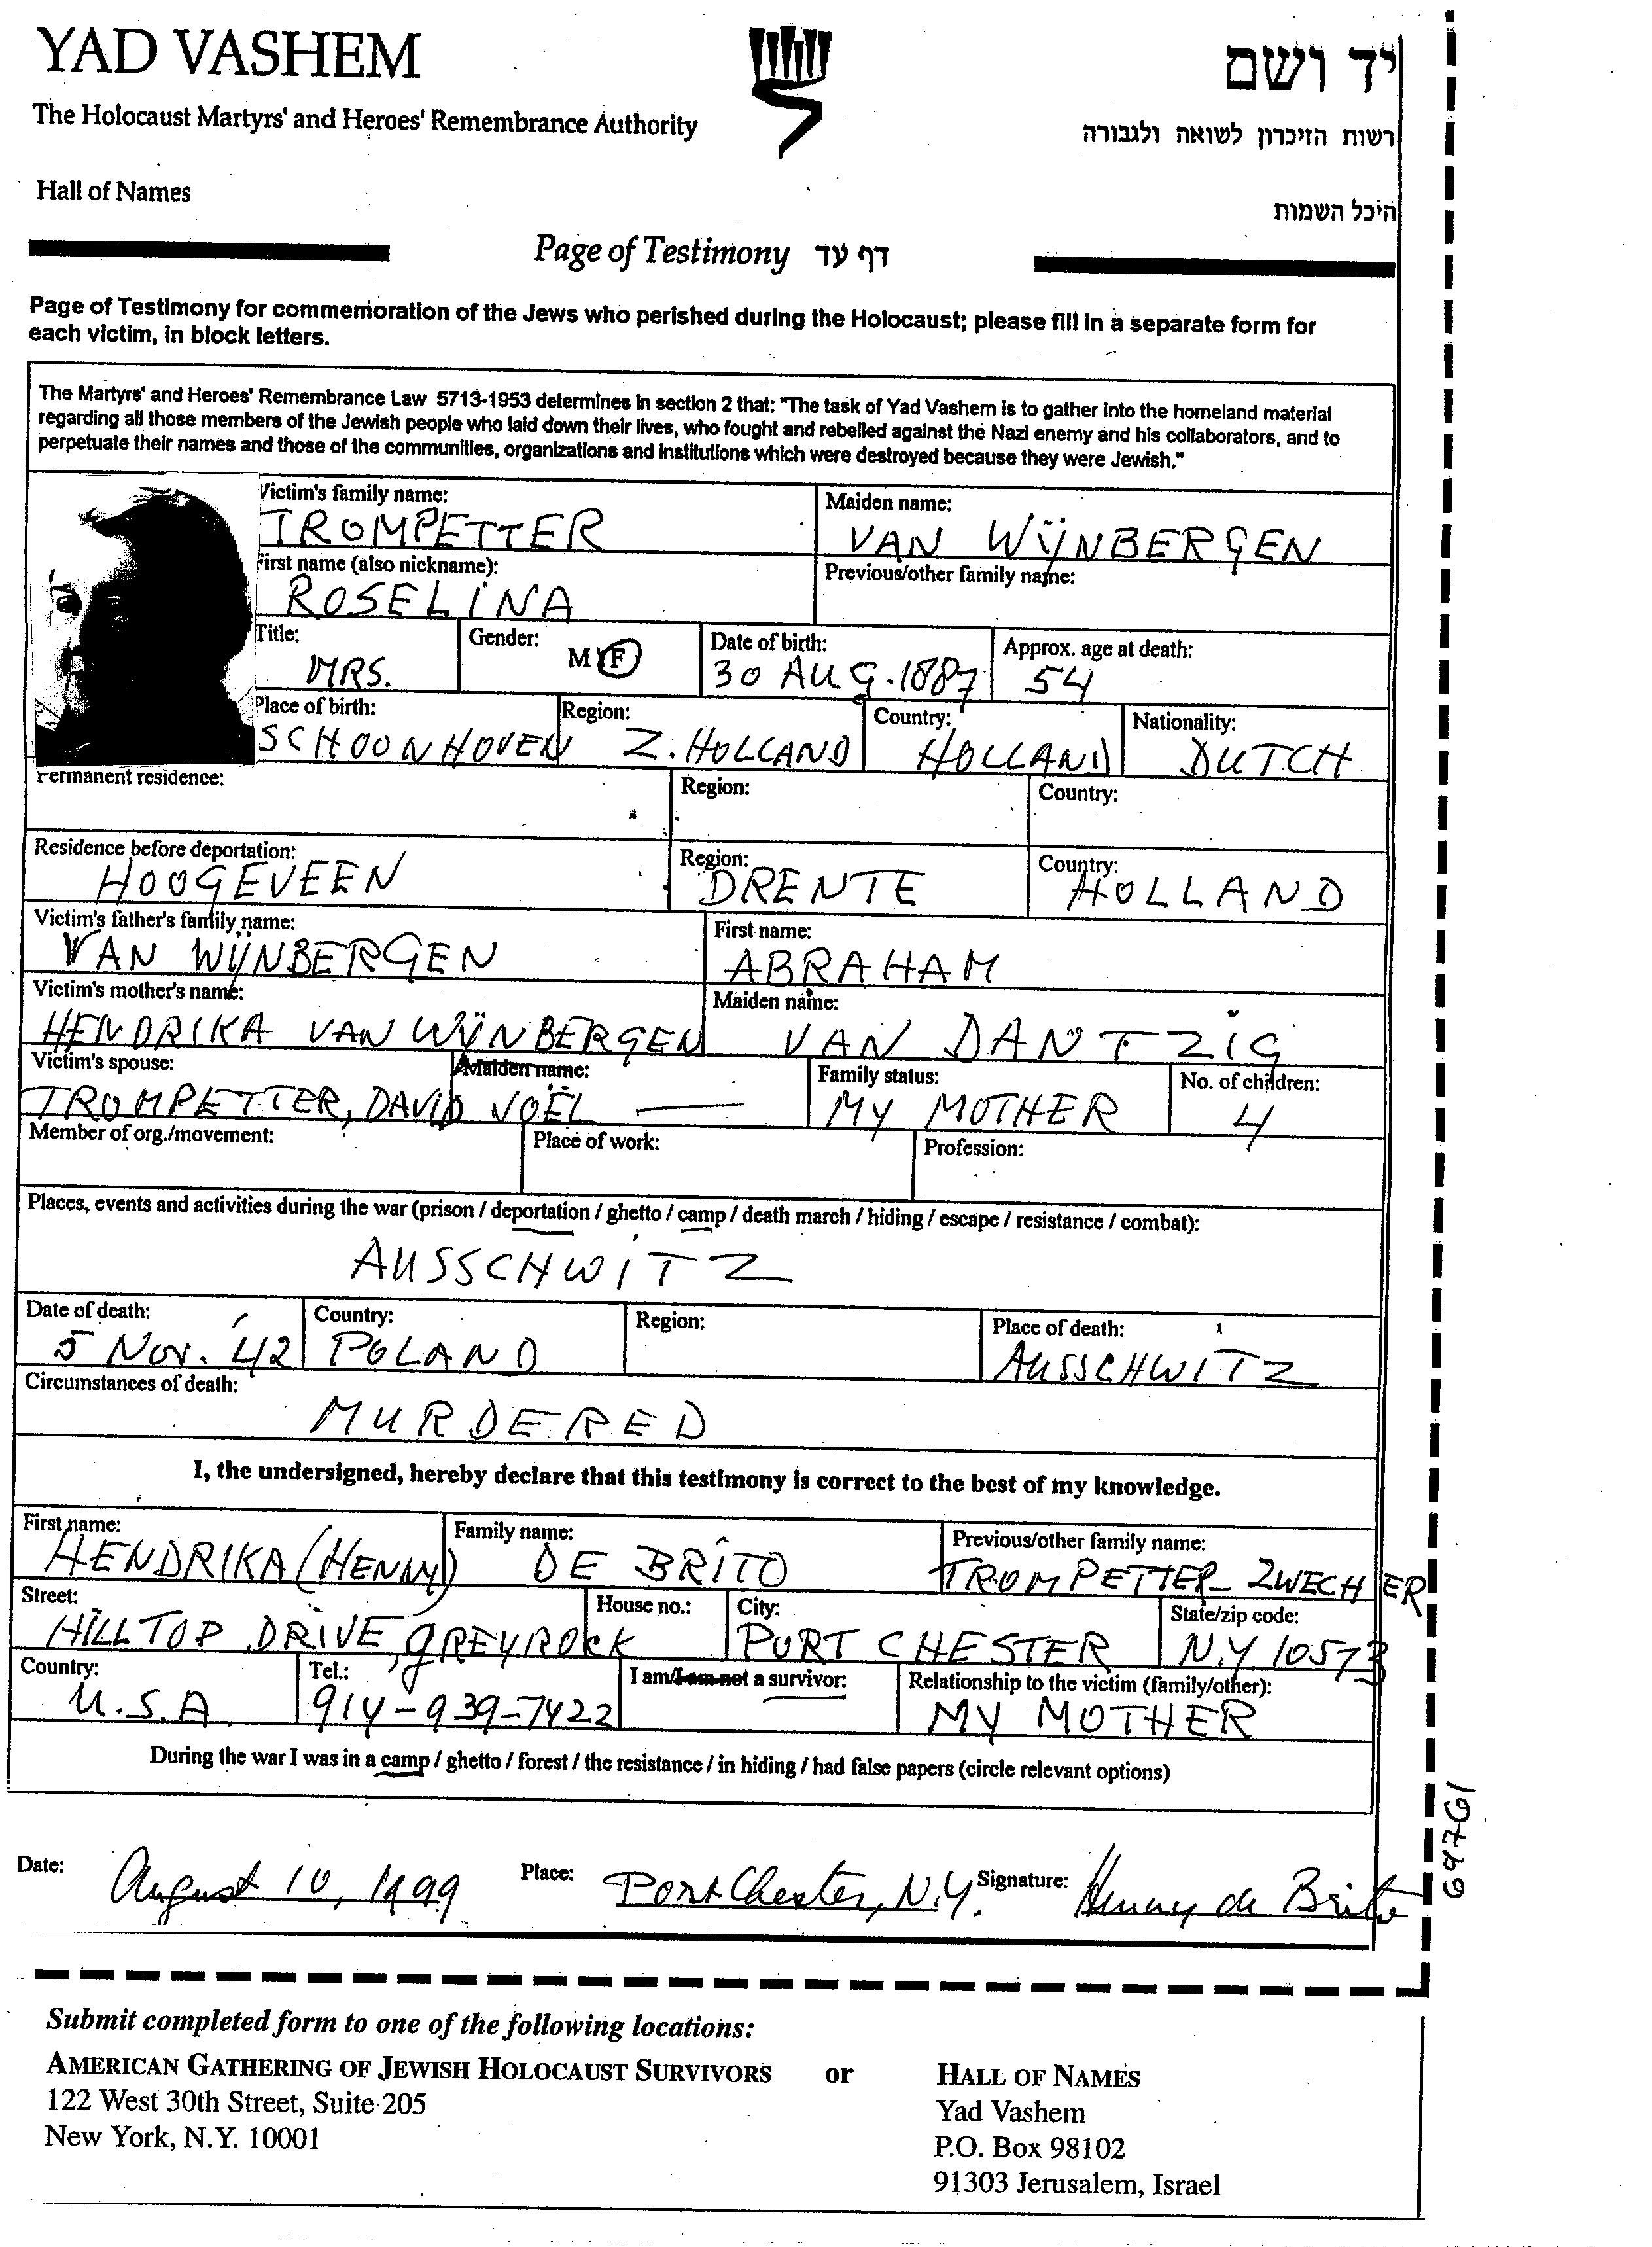 YAD VASHEM
יד ושם
The Holocaust Martyrs' and Heroes' Remembrance Authority
רשות הזיכרון לשואה ולגבורה
Hall of Names
היכל השמות
Page of Testimony דף עד
Page of Testimony for commemoration of the Jews who perished during the Holocaust; please fill in a separate form for
each victim, in block letters.
The Martyrs' and Heroes' Remembrance Law 5713-1953 determines in section 2 that: "The task of Yad Vashem is to gather into the homeland material
regarding all those members of the Jewish people who laid down their lives, who fought and rebelled against the Nazi enemy and his collaborators, and to
perpetuate their names and those of the communities, organizations and institutions which were destroyed because they were Jewish."
Victim's family name: Maiden name:
TROMPETTER VAN WIJNBERGEN
First name (also nickname): Previous/other family name:
ROSELINA
Title: Gender: M F Date of birth: Approx. age at death:
MRS. 30 AUG. 1887 54
Place of birth: Region: Country: Nationality:
SCHOONHOVEN Z. HOLLAND HOLLAND DUTCH
Permanent residence: Region: Country:
Residence before deportation: Region: Country:
HOOGEVEEN DRENTE HOLLAND
Victim's father's family name: First name:
VAN WIJNBERGEN ABRAHAM
Victim's mother's name: Maiden name:
HENDRIKA VAN WIJNBERGEN VAN DANTZIG
Victim's spouse: Maiden name: Family status: No. of children:
TROMPETTER, DAVID JOËL — MY MOTHER 4
Member of org./movement: Place of work: Profession:
Places, events and activities during the war (prison / deportation / ghetto / camp / death march / hiding / escape / resistance / combat):
AUSSCHWITZ
Date of death: Country: Region: Place of death:
5 Nov. '42 POLAND AUSSCHWITZ
Circumstances of death:
MURDERED
I, the undersigned, hereby declare that this testimony is correct to the best of my knowledge.
First name: Family name: Previous/other family name:
HENDRIKA (HENNY) DE BRITO TROMPETTER-ZWECHER
Street: House no.: City: State/zip code:
HILLTOP DRIVE, GREYROCK PORT CHESTER N.Y. 10573
Country: Tel.: I am/I am not a survivor: Relationship to the victim (family/other):
U.S.A 914-939-7422 MY MOTHER
During the war I was in a camp / ghetto / forest / the resistance / in hiding / had false papers (circle relevant options)
69761
Date: August 10, 1999 Place: Port Chester, N.Y. Signature: Henny de Brito
Submit completed form to one of the following locations:
AMERICAN GATHERING OF JEWISH HOLOCAUST SURVIVORS or HALL OF NAMES
122 West 30th Street, Suite 205 Yad Vashem
New York, N.Y. 10001 P.O. Box 98102
91303 Jerusalem, Israel